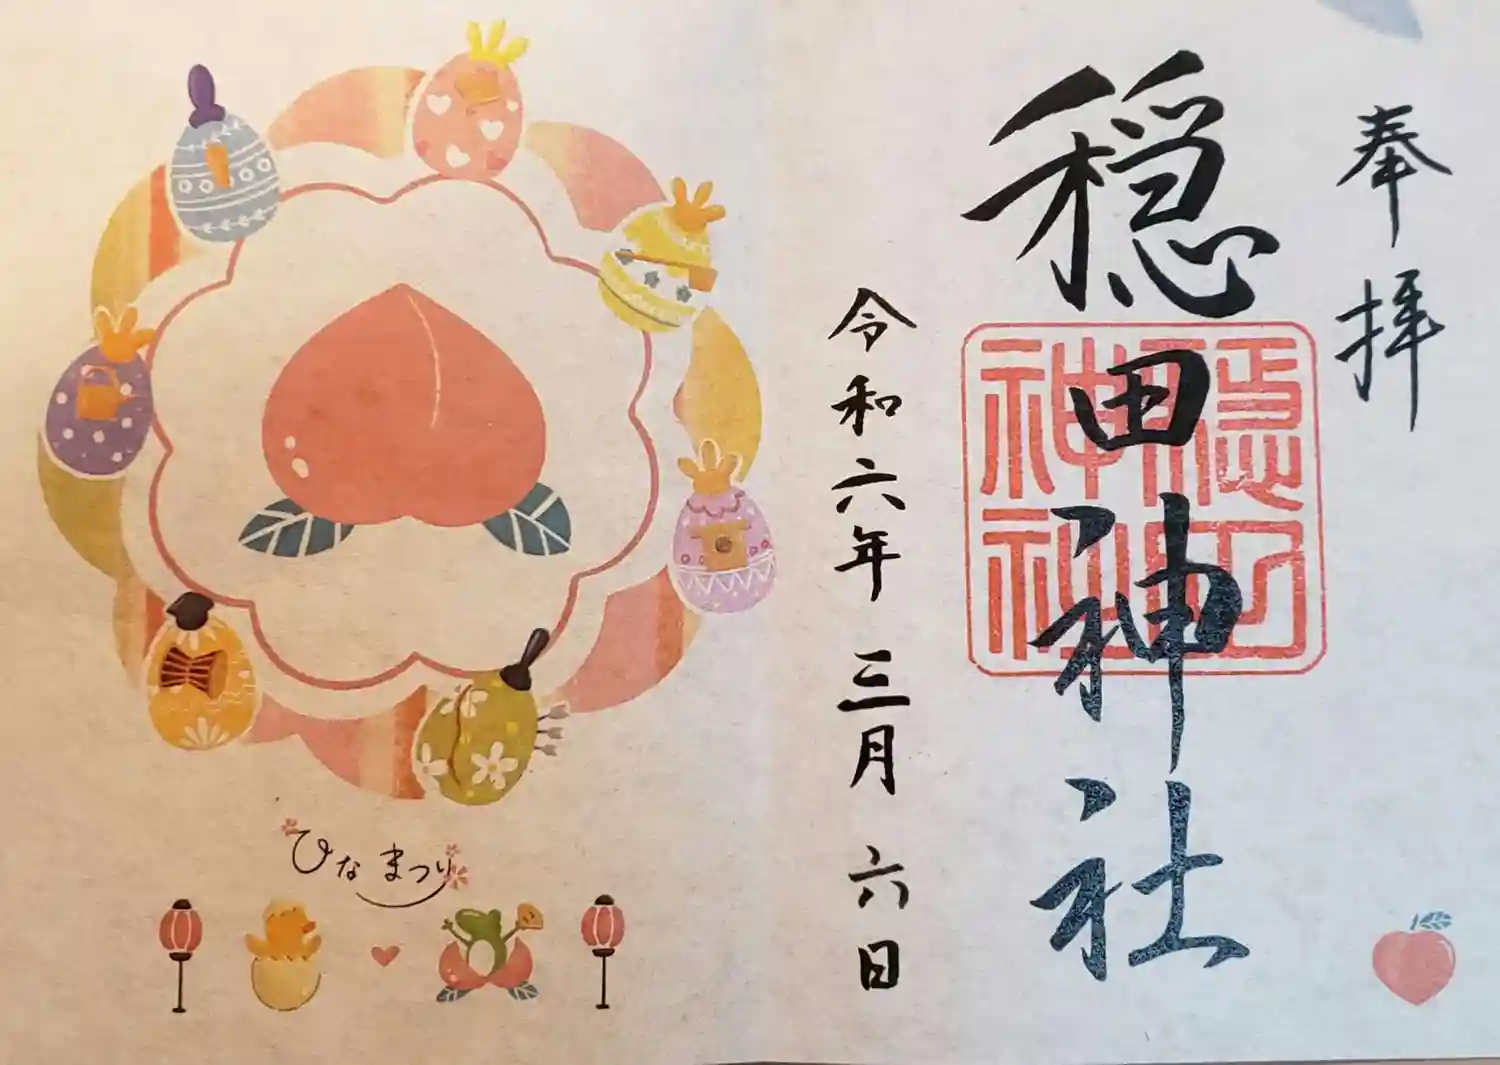 奉拝
穏田神社
穏田
神社
令和六年三月六日
ひなまつり